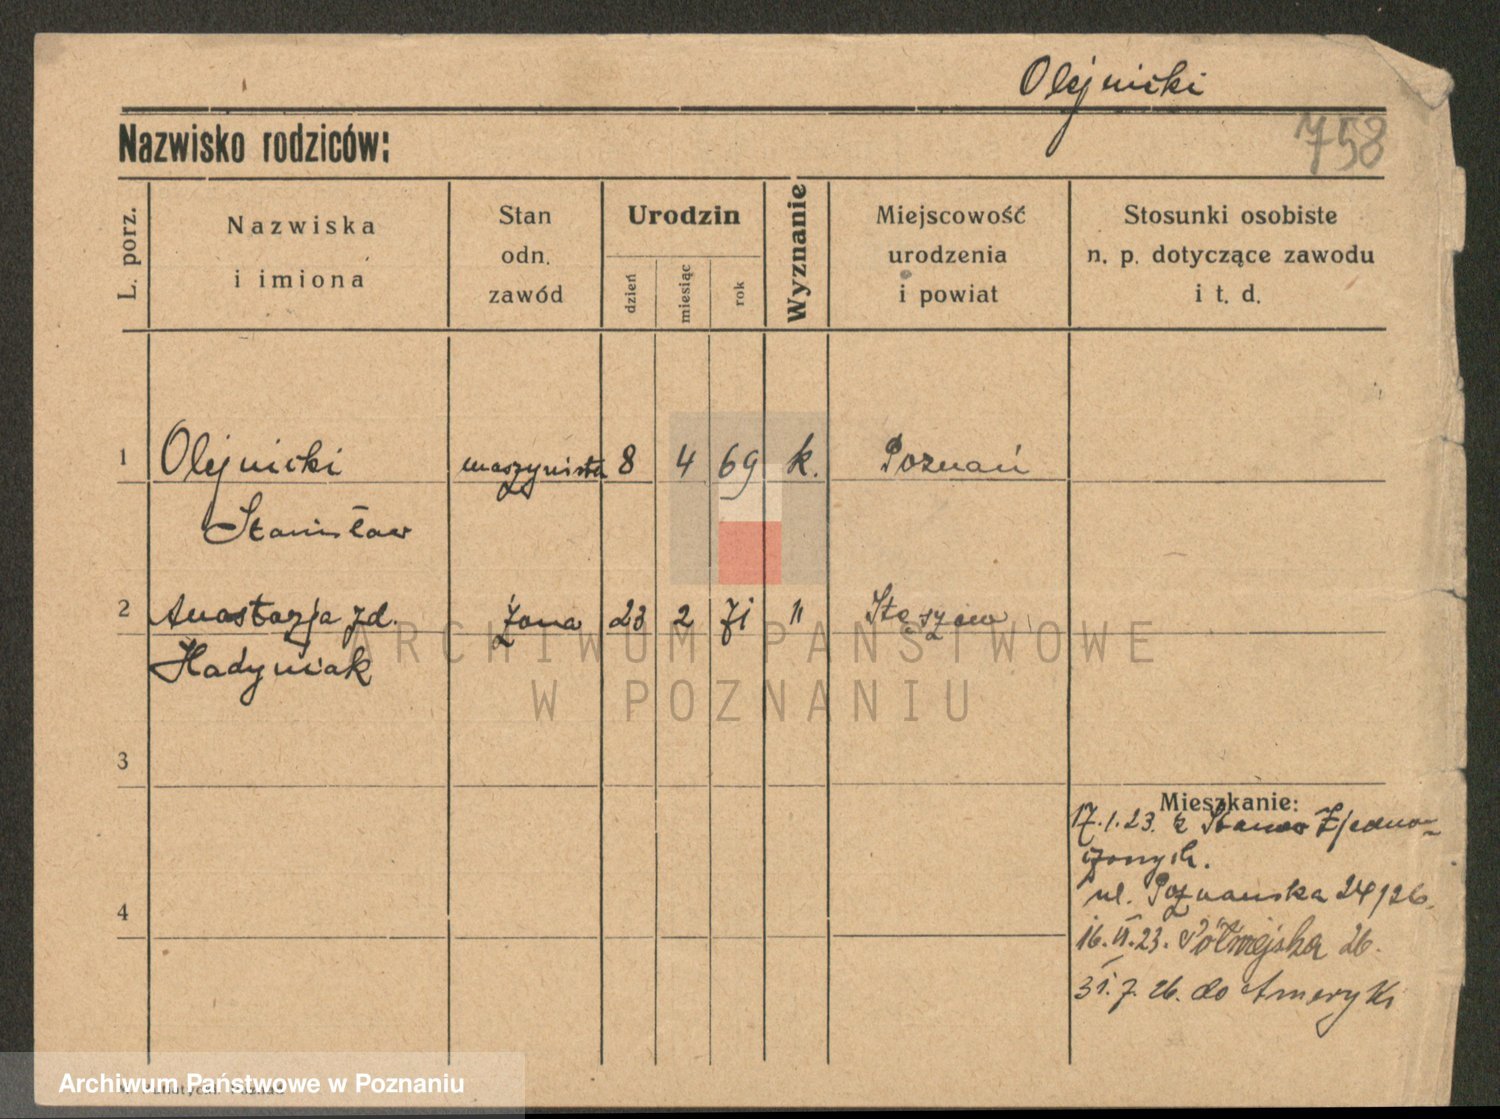 Olejnicki
Nazwisko rodziców:
758
L. porz.
Nazwiska
i imiona
Stan
odn.
zawód
Urodzin
dzień
miesiąc
rok
Wyznanie
Miejscowość
urodzenia
i powiat
Stosunki osobiste
n. p. dotyczące zawodu
i t. d.
1 Olejnicki maszynista 8 4 69 k. Poznań
Stanisław
2 Anastazja zd. żona 23 2 71 " Stęszew
Hadyniak
ARCHIWUM PAŃSTWOWE
W POZNANIU
3
Mieszkanie:
17.1.23. z Stanów Zjedno-
czonych.
ul. Poznańska 24/26.
4
16.VI.23. Półwiejska 26.
31.7.26. do Ameryki
Archiwum Państwowe w Poznaniu